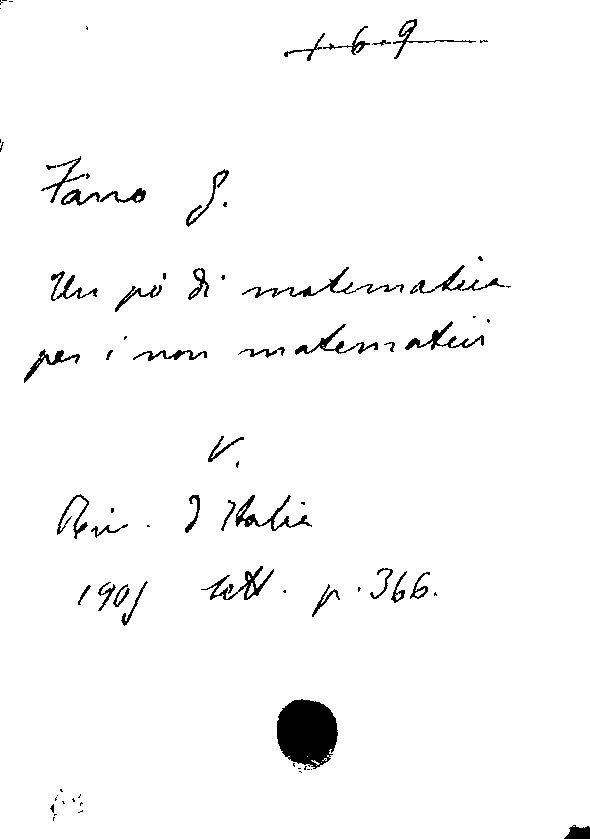 1.6.9
Fano G.
Un pò di matematica
per i non matematici
V.
Riv. d'Italia
1905 sett. p. 366.